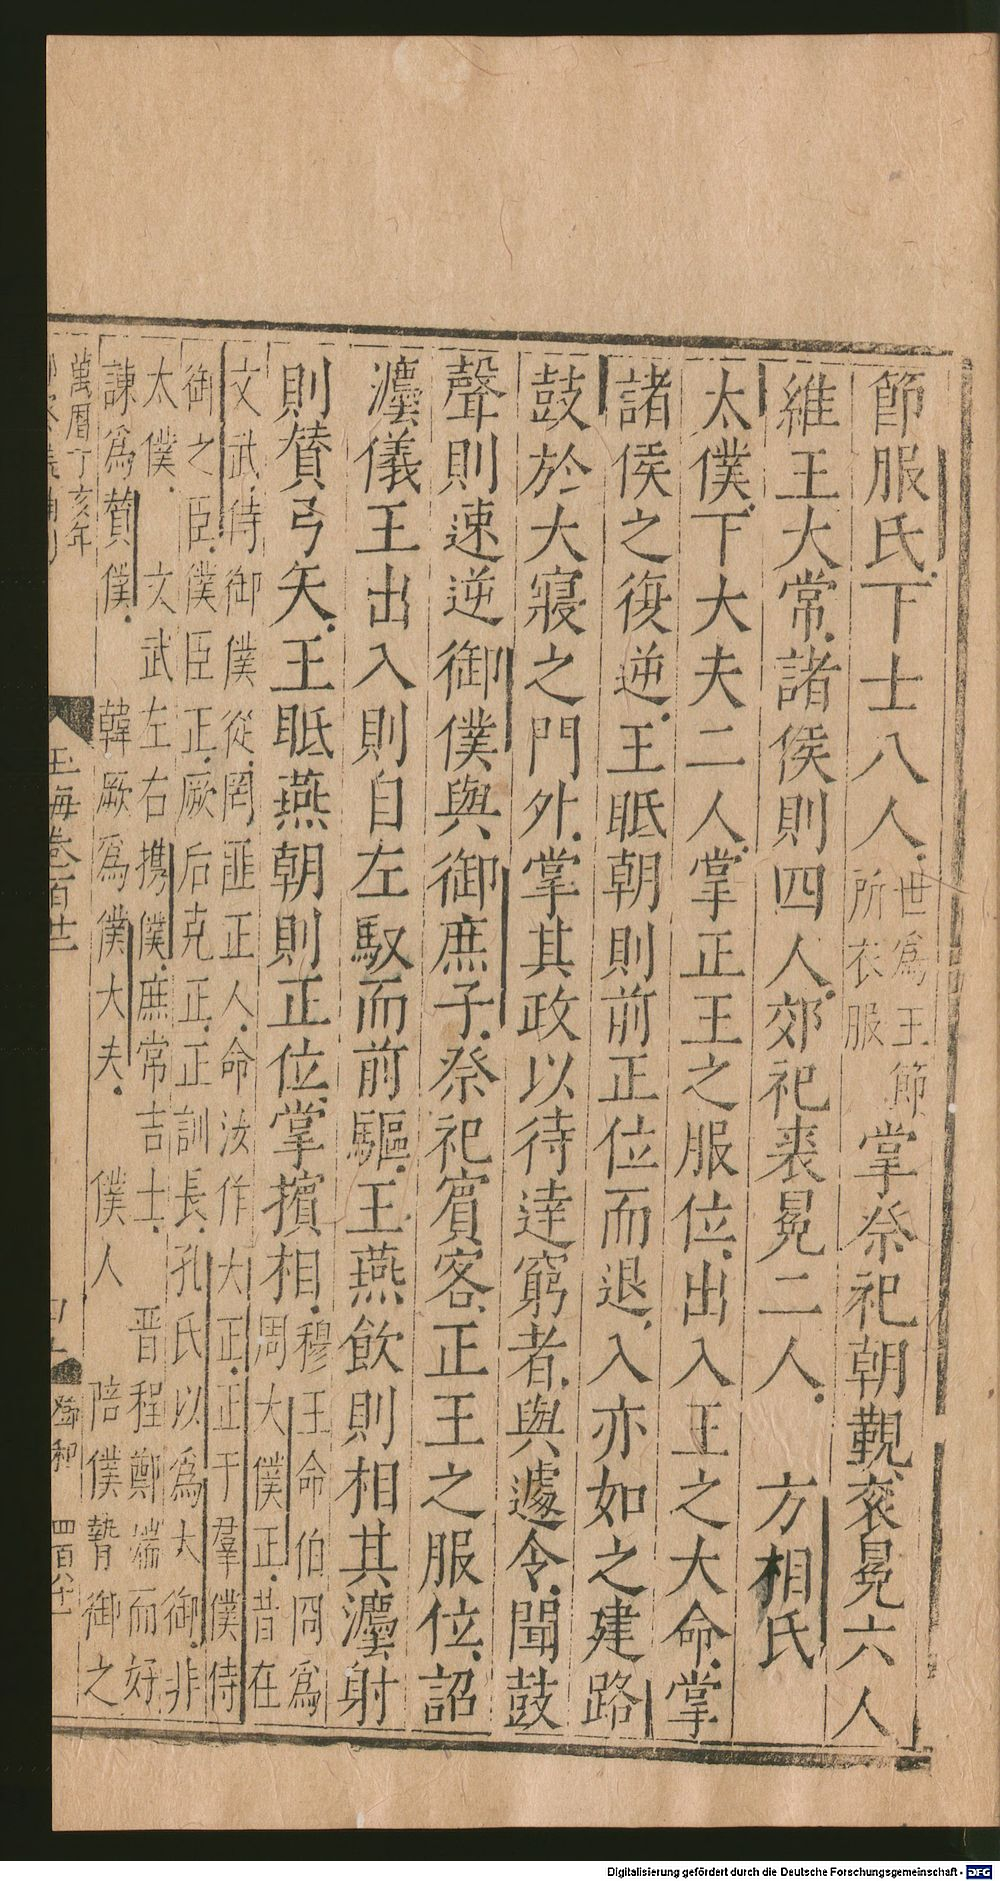 節服氏下士八人世爲王節所衣服掌祭祀朝覲衮冕六人
維王大常諸侯則四人郊祀裘冕二人　方相氏
太僕下大夫二人掌正王之服位出入王之大命掌
諸侯之復逆王眡朝則前正位而退入亦如之建路
鼓於大寢之門外掌其政以待逹窮者與遽令聞鼓
聲則速逆御僕與御庶子祭祀賓客正王之服位詔
灋儀王出入則自左馭而前驅王燕飲則相其灋射
則贊弓矢王眡燕朝則正位掌擯相穆王命伯冏爲
周大僕正昔在
文武侍御僕從罔匪正人命汝作大正正于羣僕侍
御之臣僕臣正厥后克正正訓長孔氏以爲大御非
太僕　文武左右攜僕庶常吉士　晋程鄭端而好
諫爲贊僕　韓厥爲僕大夫　僕人　陪僕暬御之
萬曆丁亥年
玉海卷百廿
四百八十一
Digitalisierung gefördert durch die Deutsche Forschungsgemeinschaft - DFG